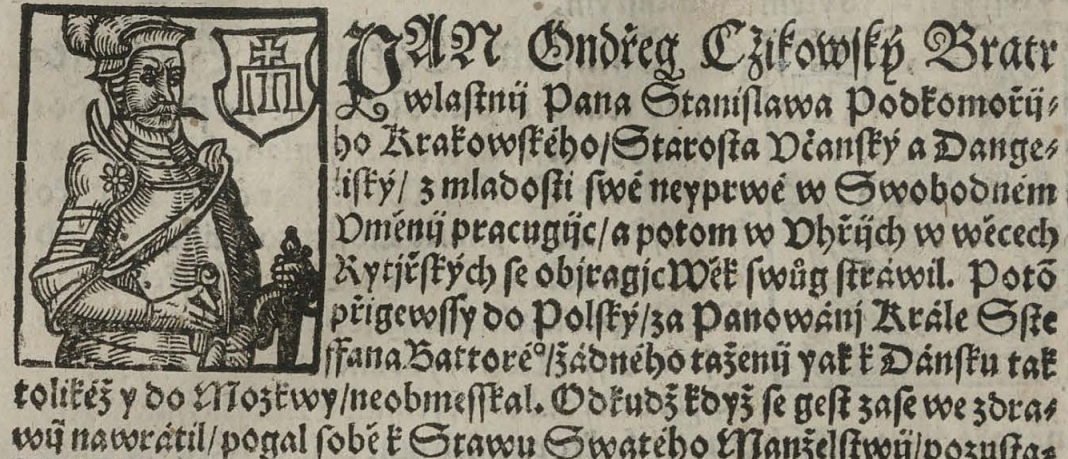 PAN Ondřeg Cžikowſký Bratr
wlaſtnij Pana Staniſlawa Podkomořij⸗
ho Krakowſkého/Staroſta Včanſký a Dange⸗
liſký/ z mladoſti ſwé neyprwé w Swobodném
Vměnij pracugijc/a potom w Vhřijch w wěcech
Rytjřſkých ſe objragjc Wěk ſwůg ſtráwil. Potõ
přigewſſy do Polſký/za Panowánj Krále Sſte
ffana Battoré°/žádného taženij yak k Dánſku tak
tolikéž y do Mozkwy/neobmeſſkal. Odkudž když ſe geſt zaſe we zdra⸗
wij nawrátil/pogal ſobě k Stawu Swatého Manželſtwij/pozuſta⸗